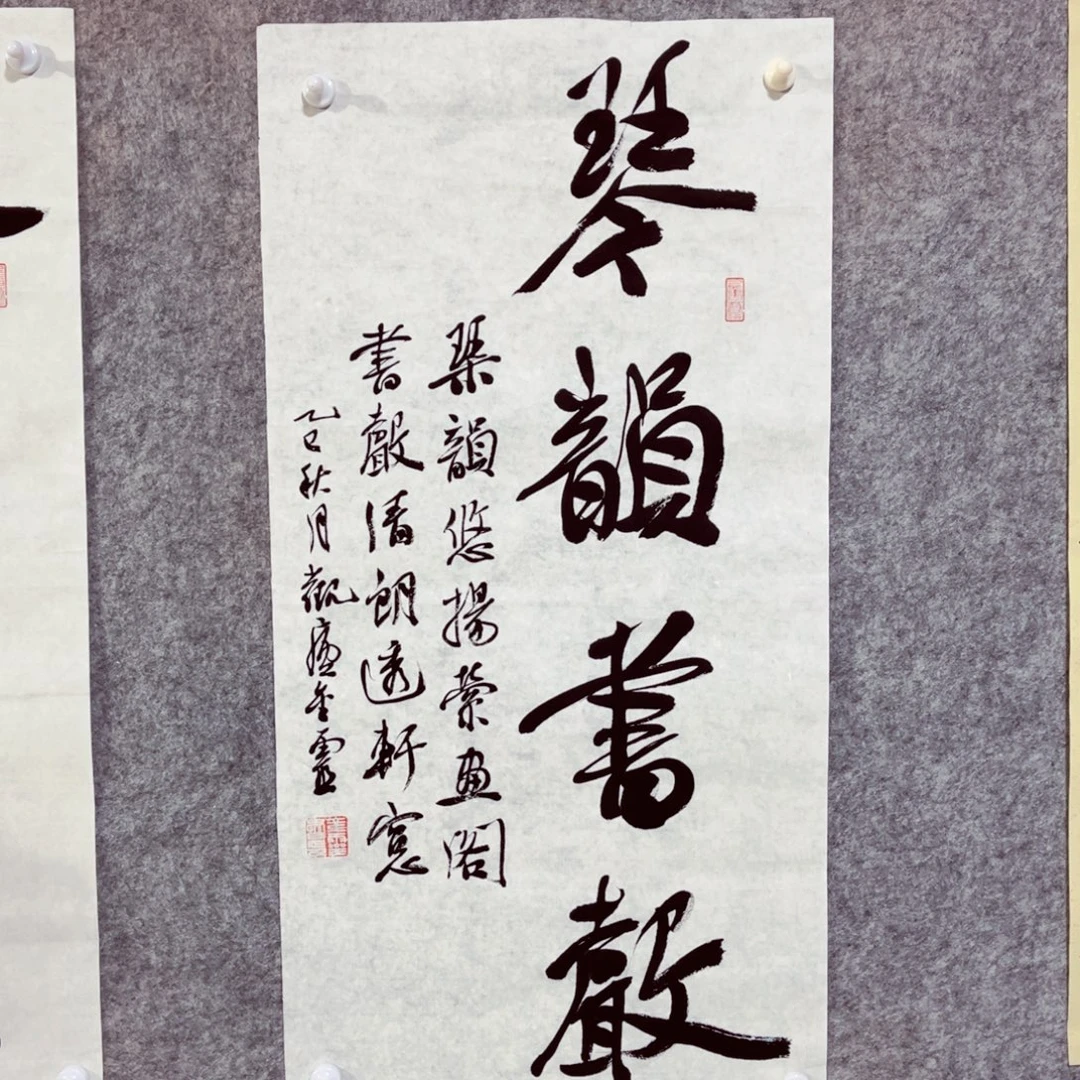 琴韻書聲
琴韻悠揚縈畫閣
書聲清朗透軒窗
乙巳秋月觀廬金靈